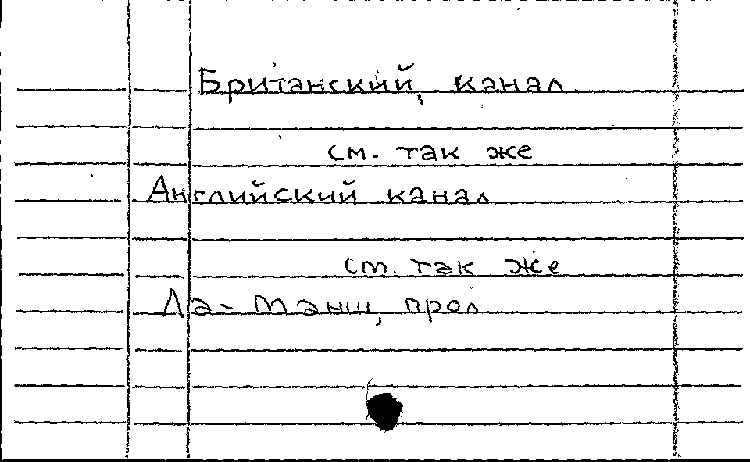 Британский, канал
см. так же
Английский канал
см. так же
Ла-Манш, прол